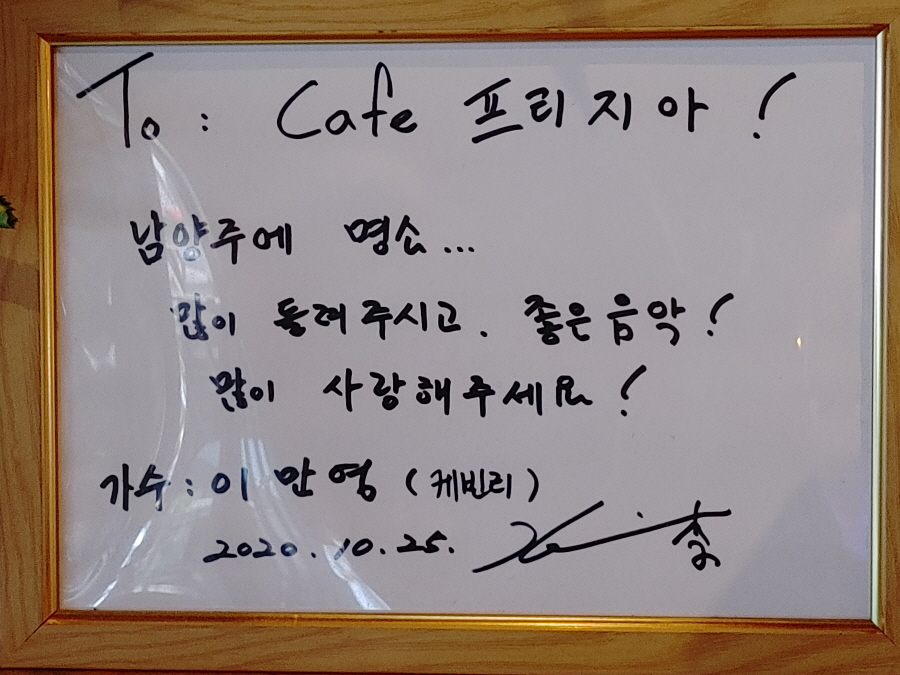 To : Cafe 프리지아 !
남양주에 명소...
많이 들려주시고. 좋은음악!
많이 사랑해주세요!
가수 : 이만영 (케빈리)
2020. 10. 25. 李